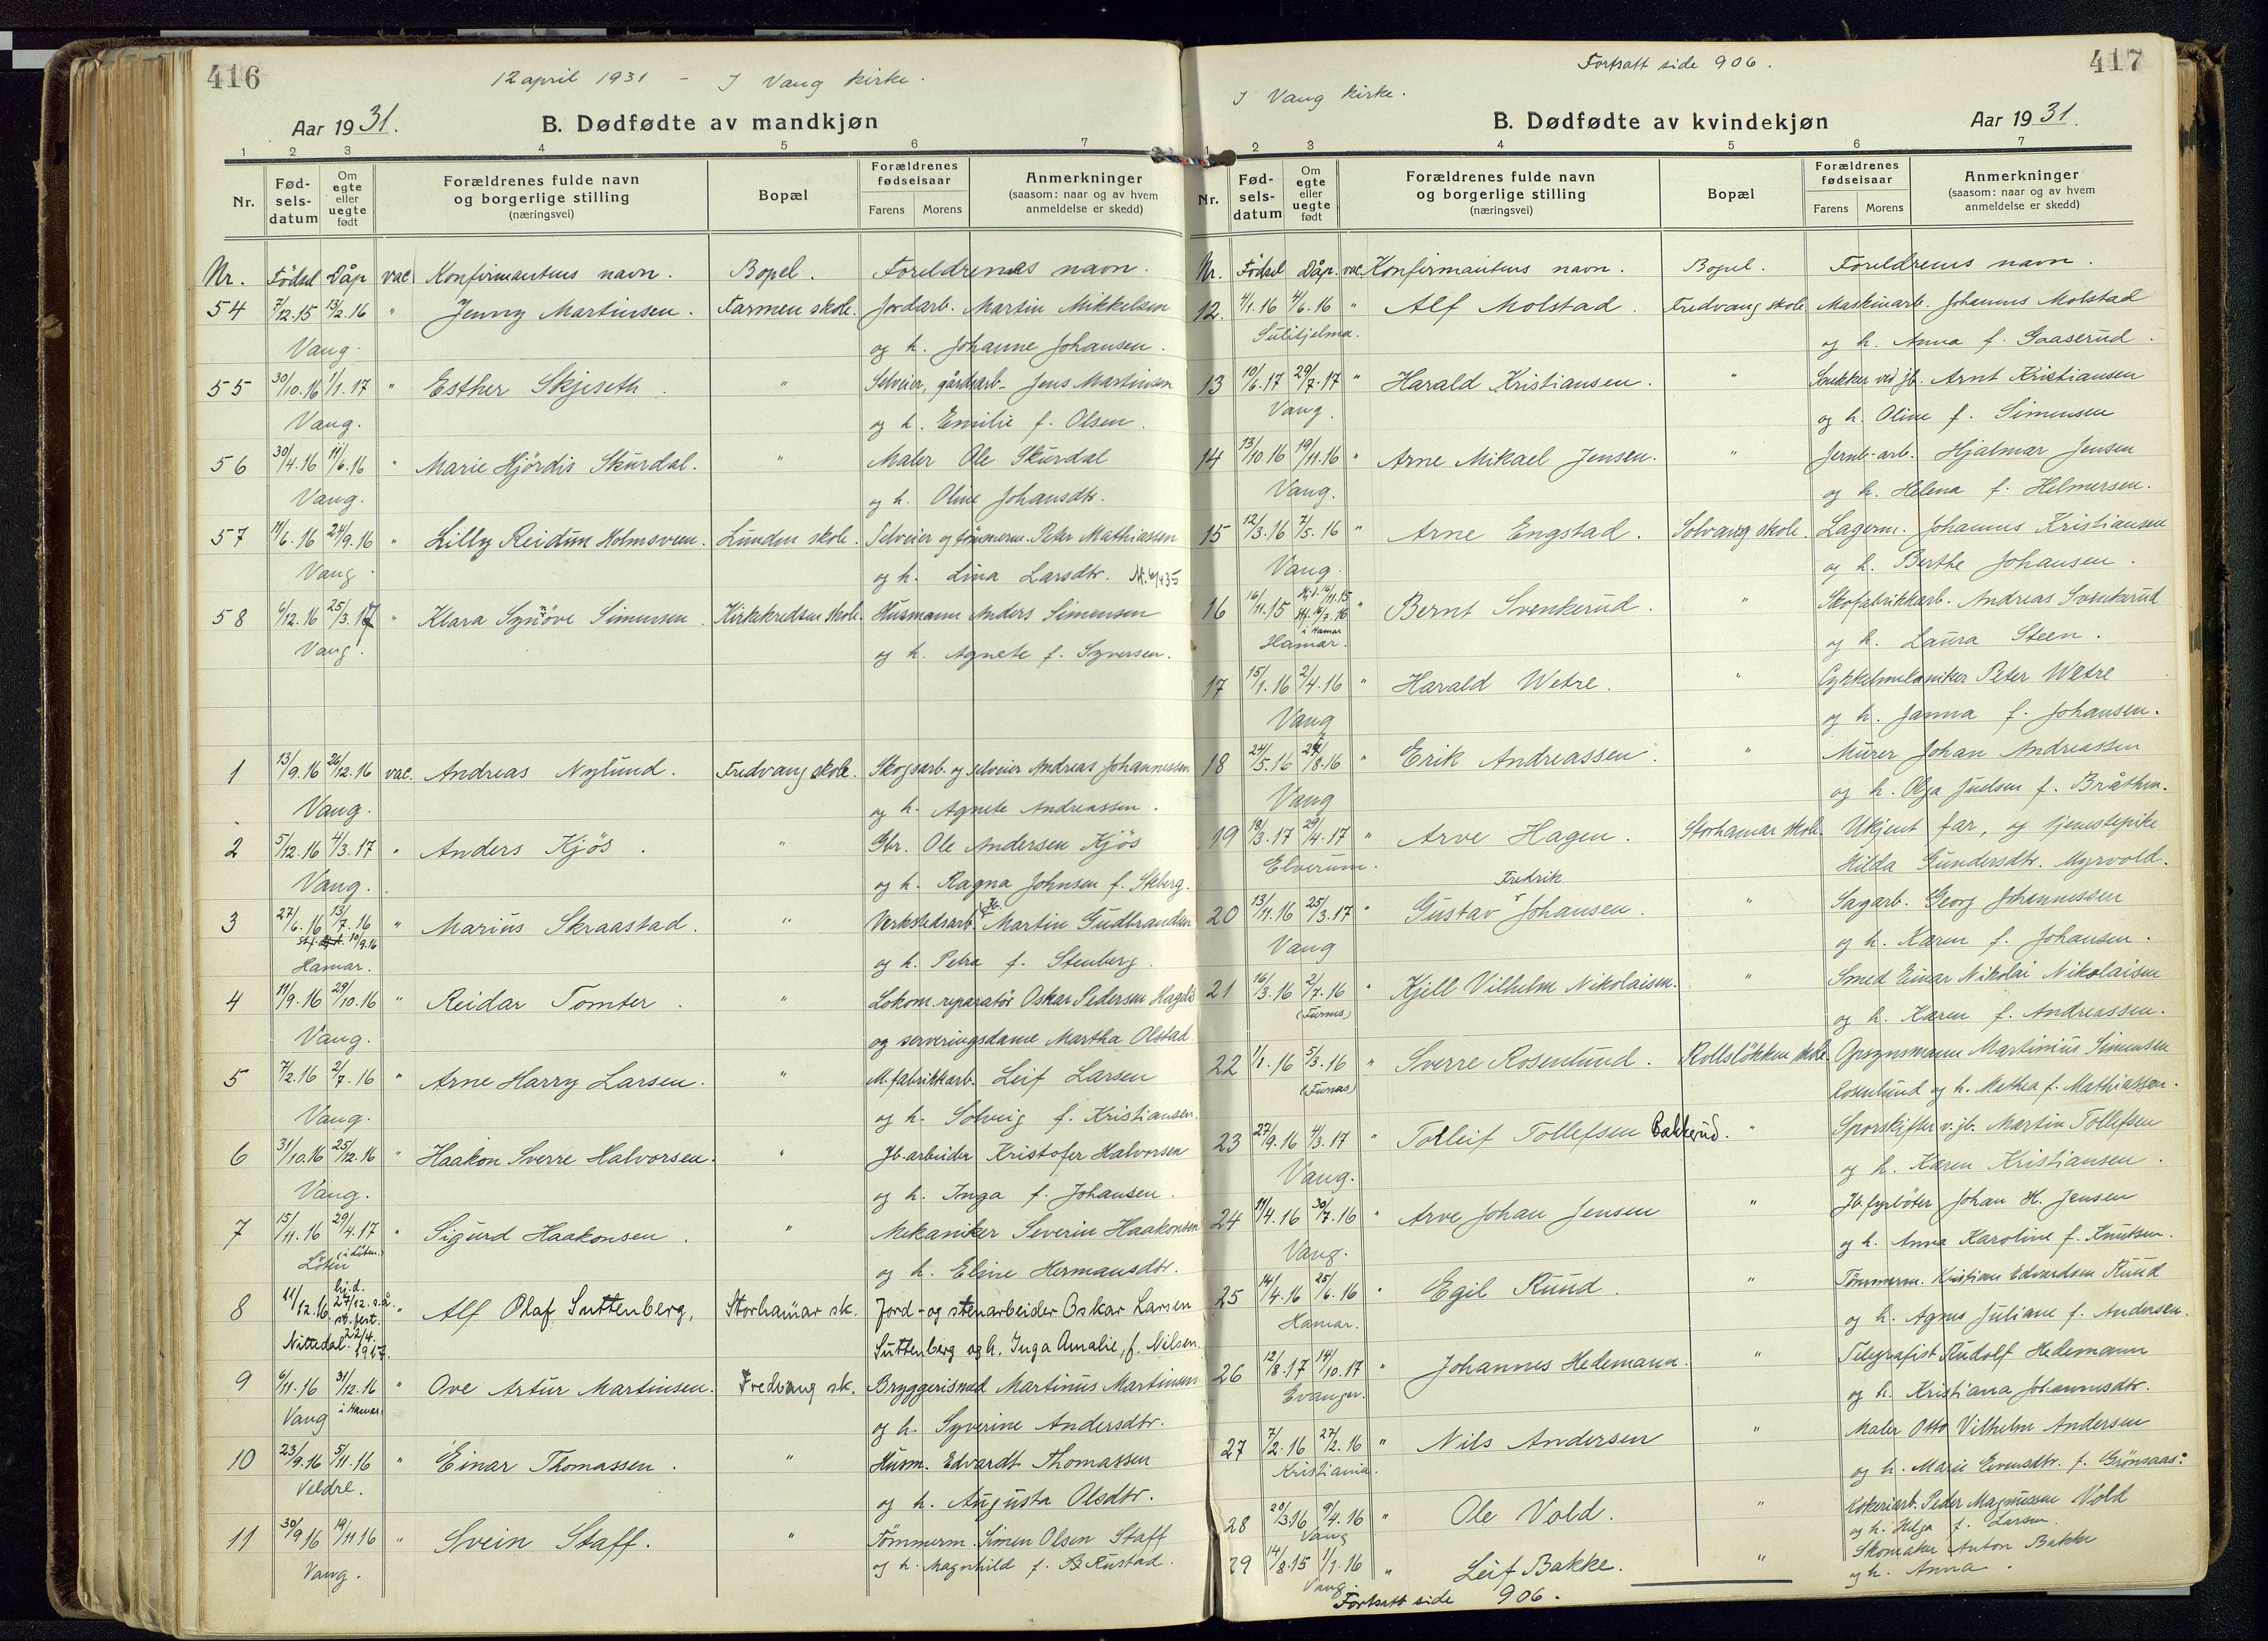 416
12 april 1931 - I Vang kirke.
Aar 1931. B. Dødfødte av mandkjøn
1 2 3 4 5 6 7
Nr. Fødselsdatum Om egte eller uegte født Forældrenes fulde navn og borgerlige stilling (næringsvei) Bopæl Forældrenes fødselsaar Farens Morens Anmerkninger (saasom: naar og av hvem anmeldelse er skedd)
Nr. Födsel Dåp vac Konfirmantens navn. Bopel. Foreldrenes navn.
54 7/12.15 13/2.16 " Jenny Martinsen. Farmen skole. Jordarb. Martin Mikkelsen
Vang. og h. Johanne Johansen.
55 30/10.16 1/1.17 " Esther Skjeseth. " Selveier, gårdsarb. Jens Martinsen
Vang. og h. Emilie f. Olsen.
56 30/4.16 11/6.16 " Marie Hjördis Skurdal. " Maler Ole Skurdal
Vang. og h. Oline Johansdtr.
57 11/6.16 24/9.16 " Lilly Reidun Holmsveen. Lunden skole. Selveier og tömmerm. Peter Mathiassen
Vang. og h. Lina Larsdtr.
58 6/12.16 25/3.17 " Klara Synöve Simensen. Kirkekredsen skole. Husmann Anders Simensen
Vang. og h. Agnete f. Syversen.
1 13/9.16 26/12.16 vac. Andreas Nylund. Fredvang skole. Skogsarb. og selveier Andreas Johannessen
Vang. og h. Agnete Andreassen.
2 5/12.16 4/3.17 " Anders Kjös. " Gbr. Ole Andersen Kjös
Vang. og h. Ragna Johnsen f. Skberg.
3 27/6.16 13/7.16 " Marius Skraastad. " Verkstedsarb. Martin Gudbrandsen
st.f. 10/9.16
Hamar. og h. Petra f. Stenberg.
4 11/9.16 29/10.16 " Reidar Tomter. " Lokom. reparatör Oskar Pedersen
Vang. og serveringsdame Martha Olstad.
5 7/2.16 2/7.16 " Arne Harry Larsen. " M.fabrikkarb. Leif Larsen
Vang. og h. Solveig f. Kristiansen.
6 31/10.16 25/12.16 " Haakon Sverre Halvorsen. " Jb.arbeider Kristofer Halvorsen
Vang. og h. Inga f. Johansen.
7 15/11.16 29/4.17 " Sigurd Haakonsen. " Mekaniker Severin Haakonsen
Löten (i Löten.) og h. Eline Hermansdtr.
8 11/12.16 hj.d. 27/12. s.å. " Alf Olaf Suttenberg, Storhamar sk. Jord- og stenarbeider Oskar Larsen
Nittedal. st. fest. 22/4. 1917. Suttenberg og h. Inga Amalie, f. Nilsen.
9 6/11.16 31/12.16 " Ove Artur Martinsen. Fredvang sk. Bryggerismed Martinus Martinsen
Vang i Hamar. og h. Syverine Andersdtr.
10 23/9.16 5/11.16 " Einar Thomassen. " Husm. Edvardt Thomassen
Veldre. og h. Augusta Olsdtr.
11 30/9.16 19/11.16 " Svein Staff. " Tömmerm. Simen Olsen Staff
Vang. og h. Magnhild f. Rustad.
Fortsatt side 906.
417
I Vang kirke.
B. Dødfødte av kvindekjøn Aar 1931.
1 2 3 4 5 6 7
Nr. Fødselsdatum Om egte eller uegte født Forældrenes fulde navn og borgerlige stilling (næringsvei) Bopæl Forældrenes fødselsaar Farens Morens Anmerkninger (saasom: naar og av hvem anmeldelse er skedd)
Nr. Födsel Dåp. vac. Konfirmantens navn. Bopel. Foreldrenes navn.
12. 4/1.16 4/6.16 " Alf Molstad. Fredvang skole Maskinarb. Johannes Molstad
Sulitjelma. og h. Anna f. Gaaserud.
13 10/6.17 29/7.17 " Harald Kristiansen. " Snekker ved jb. Arnt Kristiansen
Vang. og h. Oline f. Simensen
14 13/10.16 19/11.16 " Arne Mikael Jensen. " Jernb.-arb. Hjalmar Jensen
Vang. og h. Helena f. Helmersen.
15 12/3.16 7/5.16 " Arne Engstad. Solvang skole. Lagerm. Johannes Kristiansen
Vang. og h. Berthe Johansen.
16 16/11.15 " Bernt Svenkerud. " Skofabrikkarb. Andreas Svenkerud
i Hamar
Hamar. og h. Laura Steen.
17 15/1.16 2/4.16 " Harald Wetre. " Cykkelmekaniker Peter Wetre
Vang og h. Janna f. Johansen.
18 24/5.16 27/8.16 " Erik Andreassen. " Murer Johan Andreassen
Vang og h. Olga Juelsen f. Bråthen.
19 18/3.17 29/4.17 " Arve Hagen. Storhamar skole Ukjent far, og tjenestepike
Elverum. Hilda Gundersdtr. Myrvold.
20 13/11.16 25/3.17 " Gustav Fredrik Johansen. " Sagarb. Georg Johannessen
Vang og h. Karen f. Johansen.
21 16/3.16 2/7.16 " Kjell Vilhelm Nikolaisen. " Smed Einar Nikolai Nikolaisen
(Furnes) og h. Karen f. Andreassen.
22 1/1.16 5/3.16 " Sverre Rosenlund. Rollsløkken skole. Opsynsmann Martinius Simensen
(Furnes) Rosenlund og h. Mathea f. Mathiassen.
23 27/9.16 4/3.17 " Tolleif Tollefsen Bakkerud. " Sporskifter v. jb. Martin Tollefsen
Vang. og h. Karen Kristiansen.
24 11/4.16 30/7.16 " Arve Johan Jensen " Jb.fyrböter Johan H. Jensen
Vang. og h. Anna Karoline f. Knutsen.
25 14/4.16 25/6.16 " Egil Ruud. " Tömmerm. Kristian Edvardsen Ruud
Hamar. og h. Agnes Juliane f. Andersen.
26 12/8.17 14/10.17 " Johannes Hedemann. " Telegrafist Rudolf Hedemann
Evanger. og h. Kristiana Johannesdtr.
27 7/2.16 27/2.16 " Nils Andersen " Maler Otto Vilhelm Andersen
Kristiania. og h. Marie Evensdtr. f. Grönsaas.
28 20/3.16 9/4.16 " Ole Vold. " Kokeriarb. Peder Magnussen Vold
Vang og h. Helga f. Larsen.
29 14/8.15 1/1.16 " Leif Bakke. " Skomaker Anton Bakke
Vang. og h. Anna.
Fortsatt side 906.